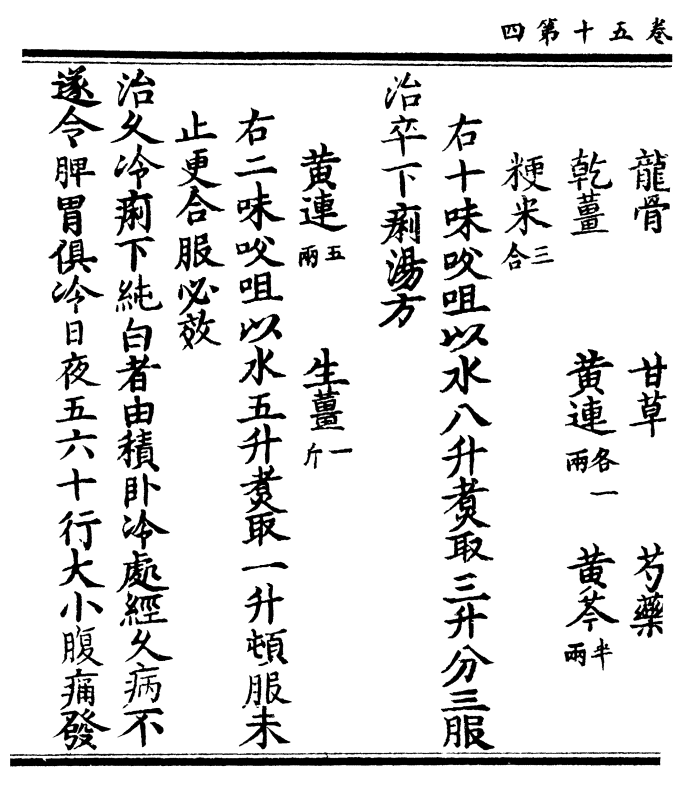 卷五十第四
龍骨 甘草 芍藥
乾薑 黄連各一兩 黄芩半兩
粳米三合
右十味㕮咀以水八升煑取三升分三服
治卒下痢湯方
黄連五兩 生薑一斤
右二味㕮咀以水五升煑取一升頓服未
止更合服必效
治久冷痢下純白者由積卧冷處經久病不
遂令脾胃俱冷日夜五六十行大小腹痛發